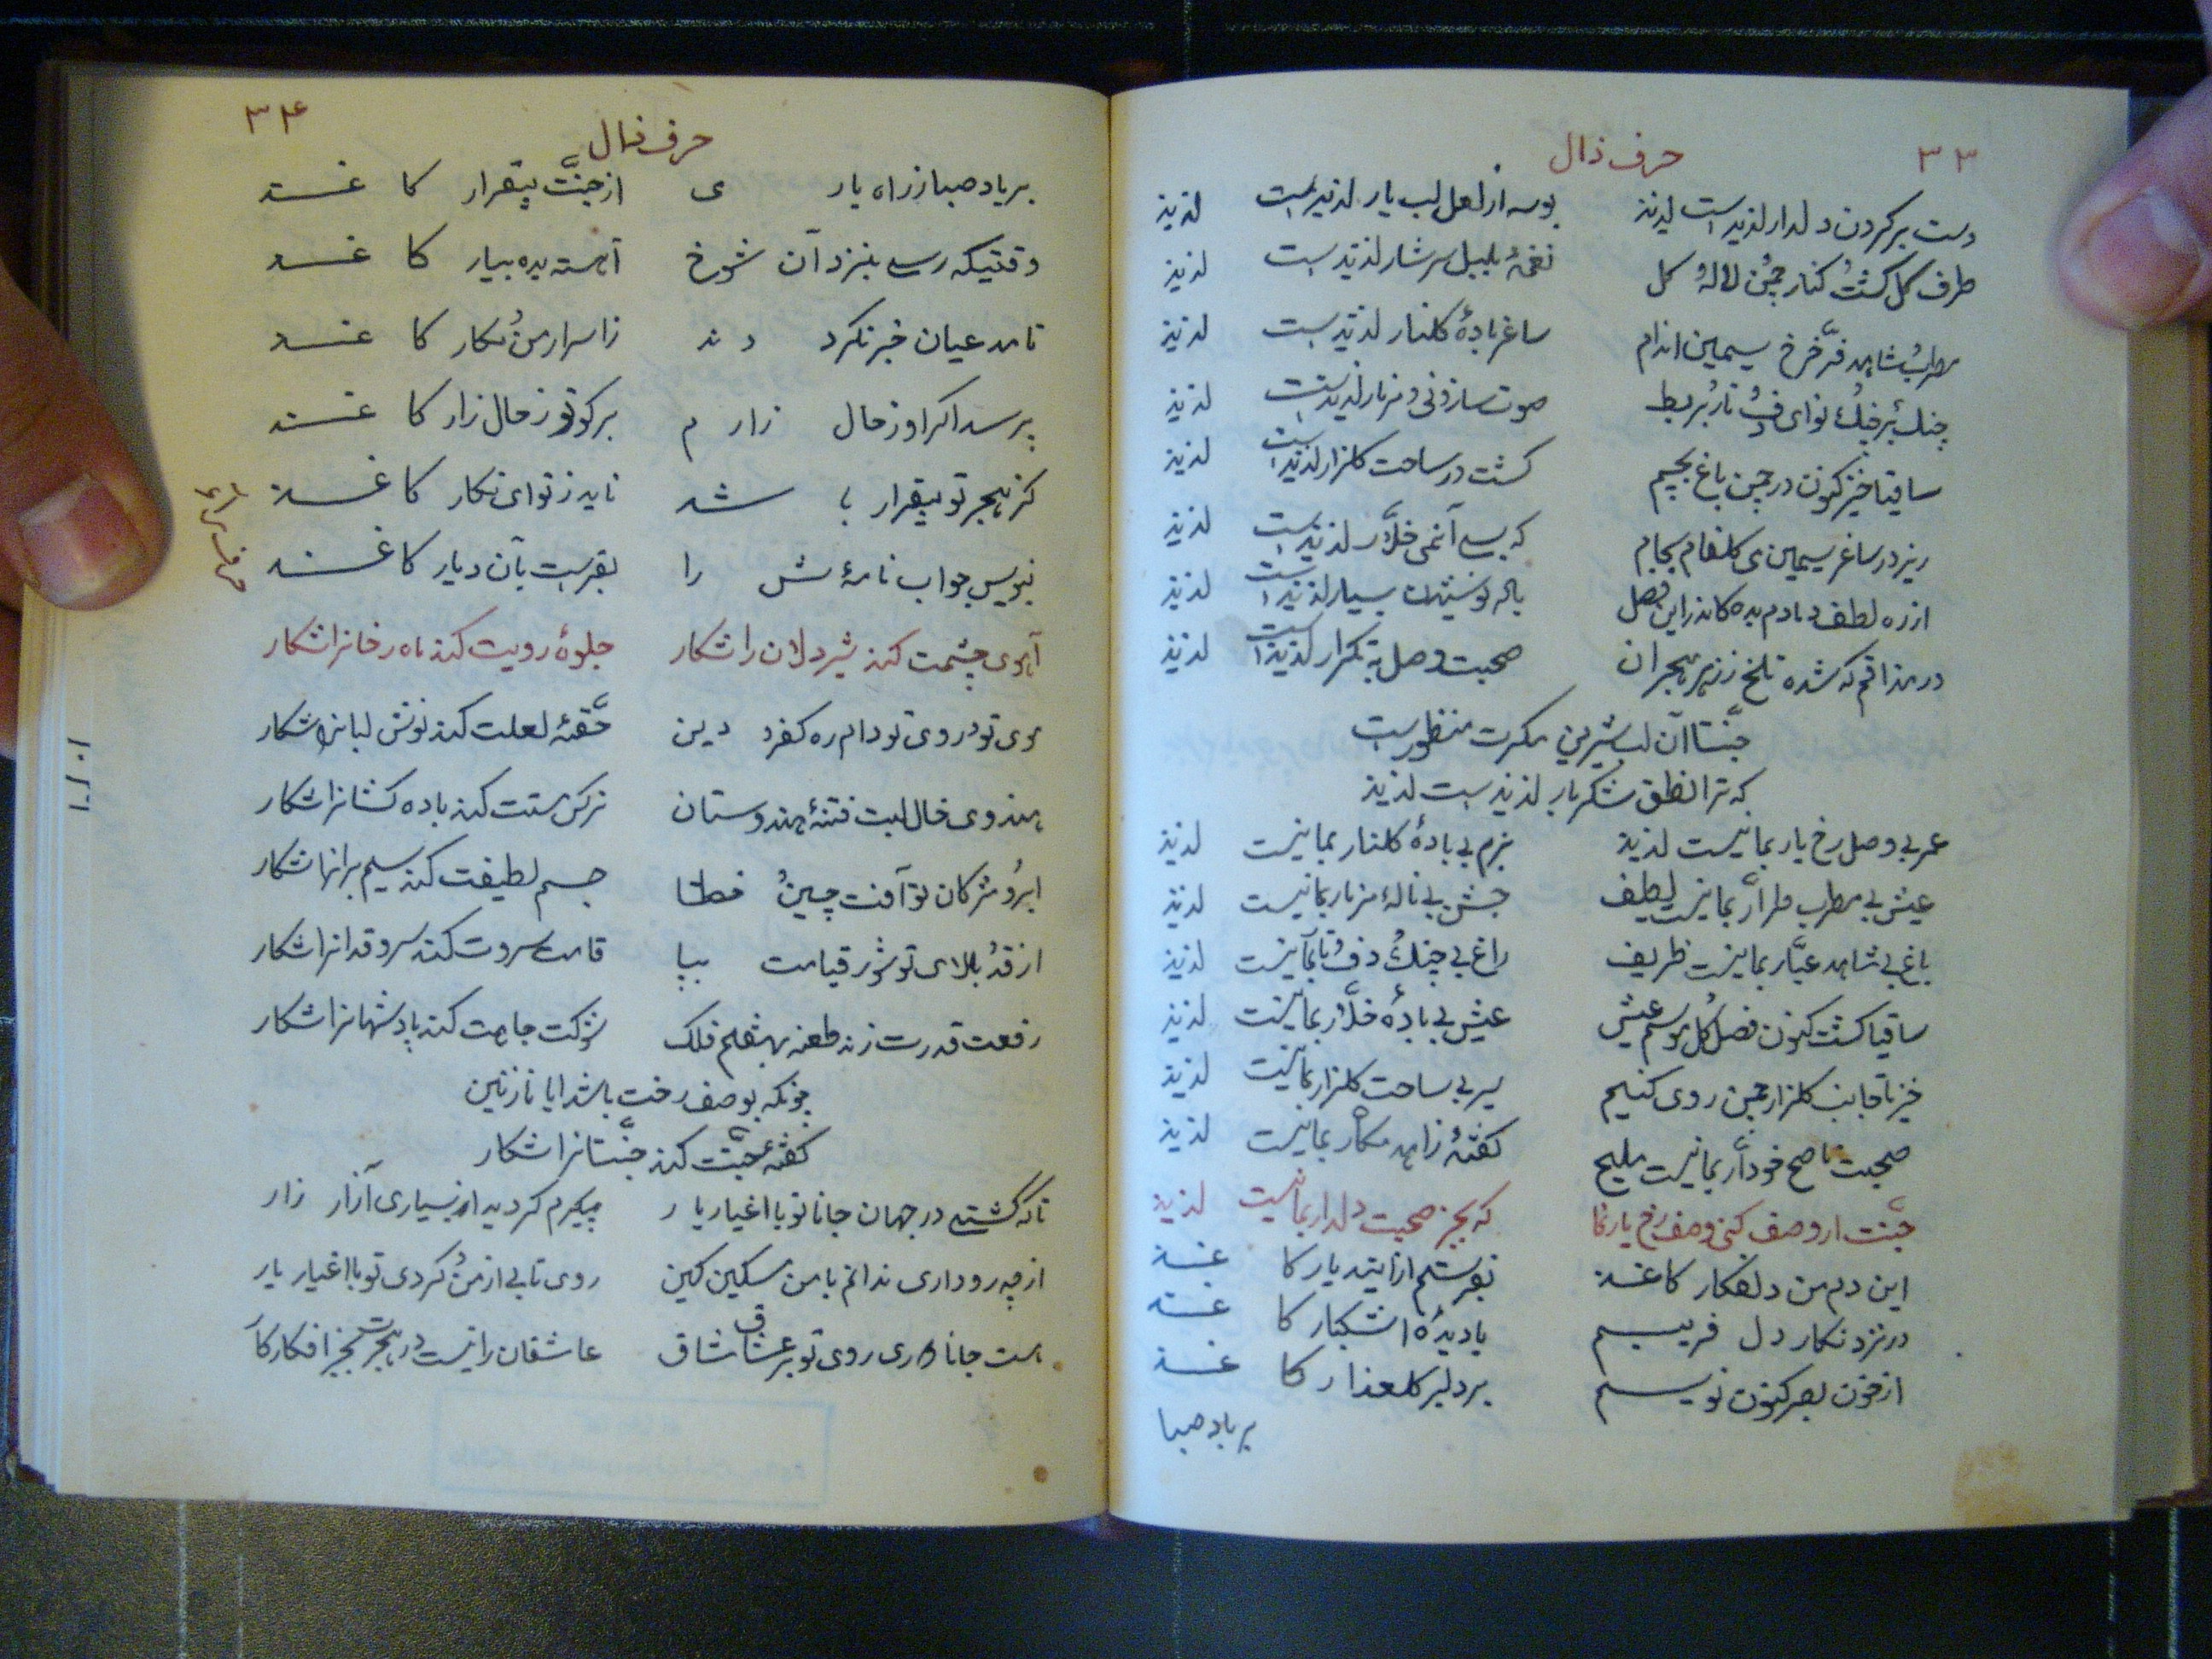 ۳۳
حرف ذال
دست بر گردن دلدار لذیذ است لذیذ بوسه از لعل لب یار لذیذ است لذیذ
طرف گل گشت کنار چمن لاله و گل نغمهٔ بلبل سرشار لذیذ است لذیذ
مطرب و شاهد فرّخ رخ سیمین اندام ساغر بادهٔ گلنار لذیذ است لذیذ
چنگ بر چنگ نوای دف و تار و بربط صوت ساز و نی و مزمار لذیذ است لذیذ
ساقیا خیز کنون در چمن باغ بچم گشت در ساحت گلزار لذیذ است لذیذ
ریز در ساغر سیمین می گلفام بجام که بسی آنمی خلّار لذیذ است لذیذ
از ره لطف دمادم بده کاندر این فصل باده نوشیدن بسیار لذیذ است لذیذ
در مذاقم که شده تلخ ز زهر هجران صحبت وصل به تکرار لذیذ است لذیذ
جنّتا آن لب شیرین مکرت منظور است
که ترا نطق شکربار لذیذ است لذیذ
عمر بی وصل رخ یار بما نیست لذیذ بزم بی بادهٔ گلنار بما نیست لذیذ
عیش بی مطرب طرّار بما نیست لطیف جشن بی نالهٔ مزمار بما نیست لذیذ
باغ بی شاهد عیّار بما نیست ظریف راغ بی چنگ و دف و تار بما نیست لذیذ
ساقیا گشت کنون فصل گل و موسم عیش عیش بی بادهٔ خلّار بما نیست لذیذ
خیز تا جانب گلزار چمن روی کنیم سیر بی ساحت گلزار بما نیست لذیذ
صحبت ناصح خوددار بما نیست ملیح گفتهٔ زاهد مکّار بما نیست لذیذ
جنّت ار وصف کنی وصف رخ یار نما که بجز صحبت دلدار بما نیست لذیذ
این دم من دلفکار کاغذ بفرستم از این دیار کاغذ
در نزد نگار دل فریبم با دیدهٔ اشکبار کاغذ
از خون بصر کنون نویسم بر دلبر گلعذار کاغذ
بر باد صبا
۳۴
حرف ذال
بر باد صبا ز راه یاری از جنّت بیقرار کاغذ
وقتیکه رسی بنزد آن شوخ آهسته بده بیار کاغذ
تا مدعیان خبر نگردند ز اسرار من و نگار کاغذ
پرسد اگر او ز حال زارم بر گو تو ز حال زار کاغذ
کز هجر تو بیقرار باشد ناید ز تو ای نگار کاغذ
بنویس جواب نامه‌اش را بفرست بآن دیار کاغذ
آهوی چشمت کند شیر دلان را شکار جلوهٔ رویت کند ماه رخانرا شکار
موی تو در روی تو دام ره کفر و دین حقّهٔ لعلت کند نوش لبانرا شکار
هندوی خال لبت فتنهٔ هندوستان نرگس مستت کند باده کشانرا شکار
ابرو و مژگان تو آفت چین و خطا جسم لطیفت کند سیم برانرا شکار
از قد و بالای تو شور قیامت بپا قامت سروت کند سرو قدانرا شکار
رفعت قدرت زند طعنه بهفتم فلک شوکت جاهت کند پادشهانرا شکار
چونکه بوصف رخت باشد ایا نازنین
گفتهٔ جنّت کند جنّتانرا شکار
تا که گشتی در جهان جانا تو با اغیار یار پیکرم گردید از بسیاری آزار زار
از چه رو داری ندانم با من مسکین کین روی تابی از من و گردی تو با اغیار یار
هست جانا داری روی تو بر عشاق شاق عاشقان را نیست در هجرت بجز افکار کار